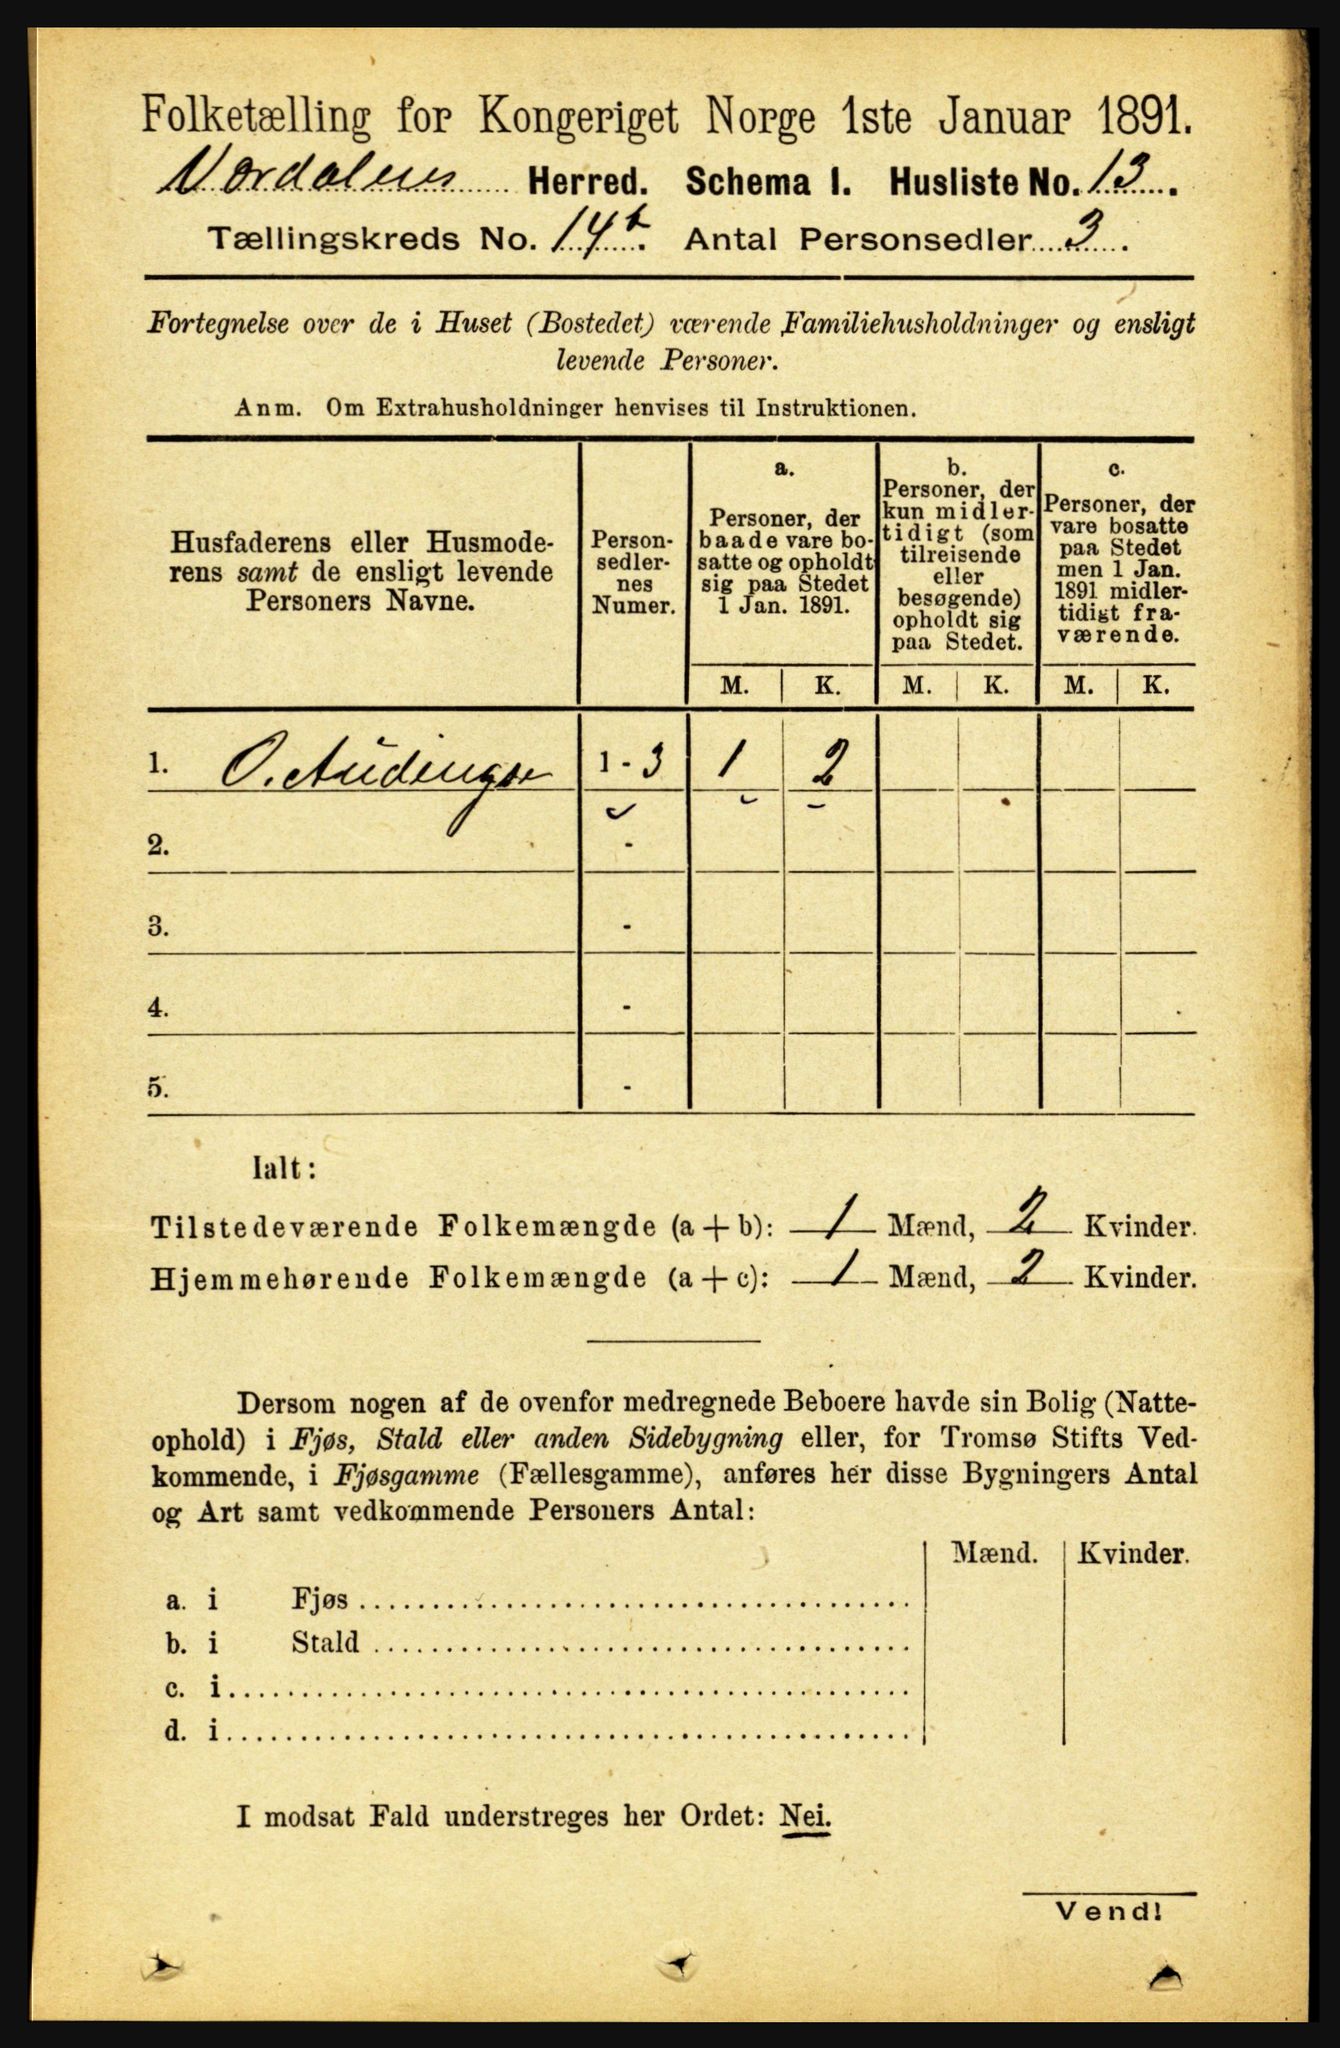 Folketælling for Kongeriget Norge 1ste Januar 1891.
Nordalens Herred. Schema I. Husliste No. 13.
Tællingskreds No. 14b. Antal Personsedler 3.
Fortegnelse over de i Huset (Bostedet) værende Familiehusholdninger og ensligt
levende Personer.
Anm. Om Extrahusholdninger henvises til Instruktionen.
Husfaderens eller Husmode-
rens samt de ensligt levende
Personers Navne.
Person-
sedler-
nes
Numer.
a.
Personer, der
baade vare bo-
satte og opholdt
sig paa Stedet
1 Jan. 1891.
b.
Personer, der
kun midler-
tidigt (som
tilreisende
eller
besøgende)
opholdt sig
paa Stedet.
c.
Personer, der
vare bosatte
paa Stedet
men 1 Jan.
1891 midler-
tidigt fra-
værende.
M. K. M. K. M. K.
1. O. 1 - 3 1 2
2. -
3. -
4. -
5. -
Ialt:
Tilstedeværende Folkemængde (a + b): 1 Mænd, 2 Kvinder.
Hjemmehørende Folkemængde (a + c): 1 Mænd, 2 Kvinder.
Dersom nogen af de ovenfor medregnede Beboere havde sin Bolig (Natte-
ophold) i Fjøs, Stald eller anden Sidebygning eller, for Tromsø Stifts Ved-
kommende, i Fjøsgamme (Fællesgamme), anføres her disse Bygningers Antal
og Art samt vedkommende Personers Antal:
Mænd. Kvinder.
a. i Fjøs
b. i Stald
c. i
d. i
I modsat Fald understreges her Ordet: Nei.
Vend!